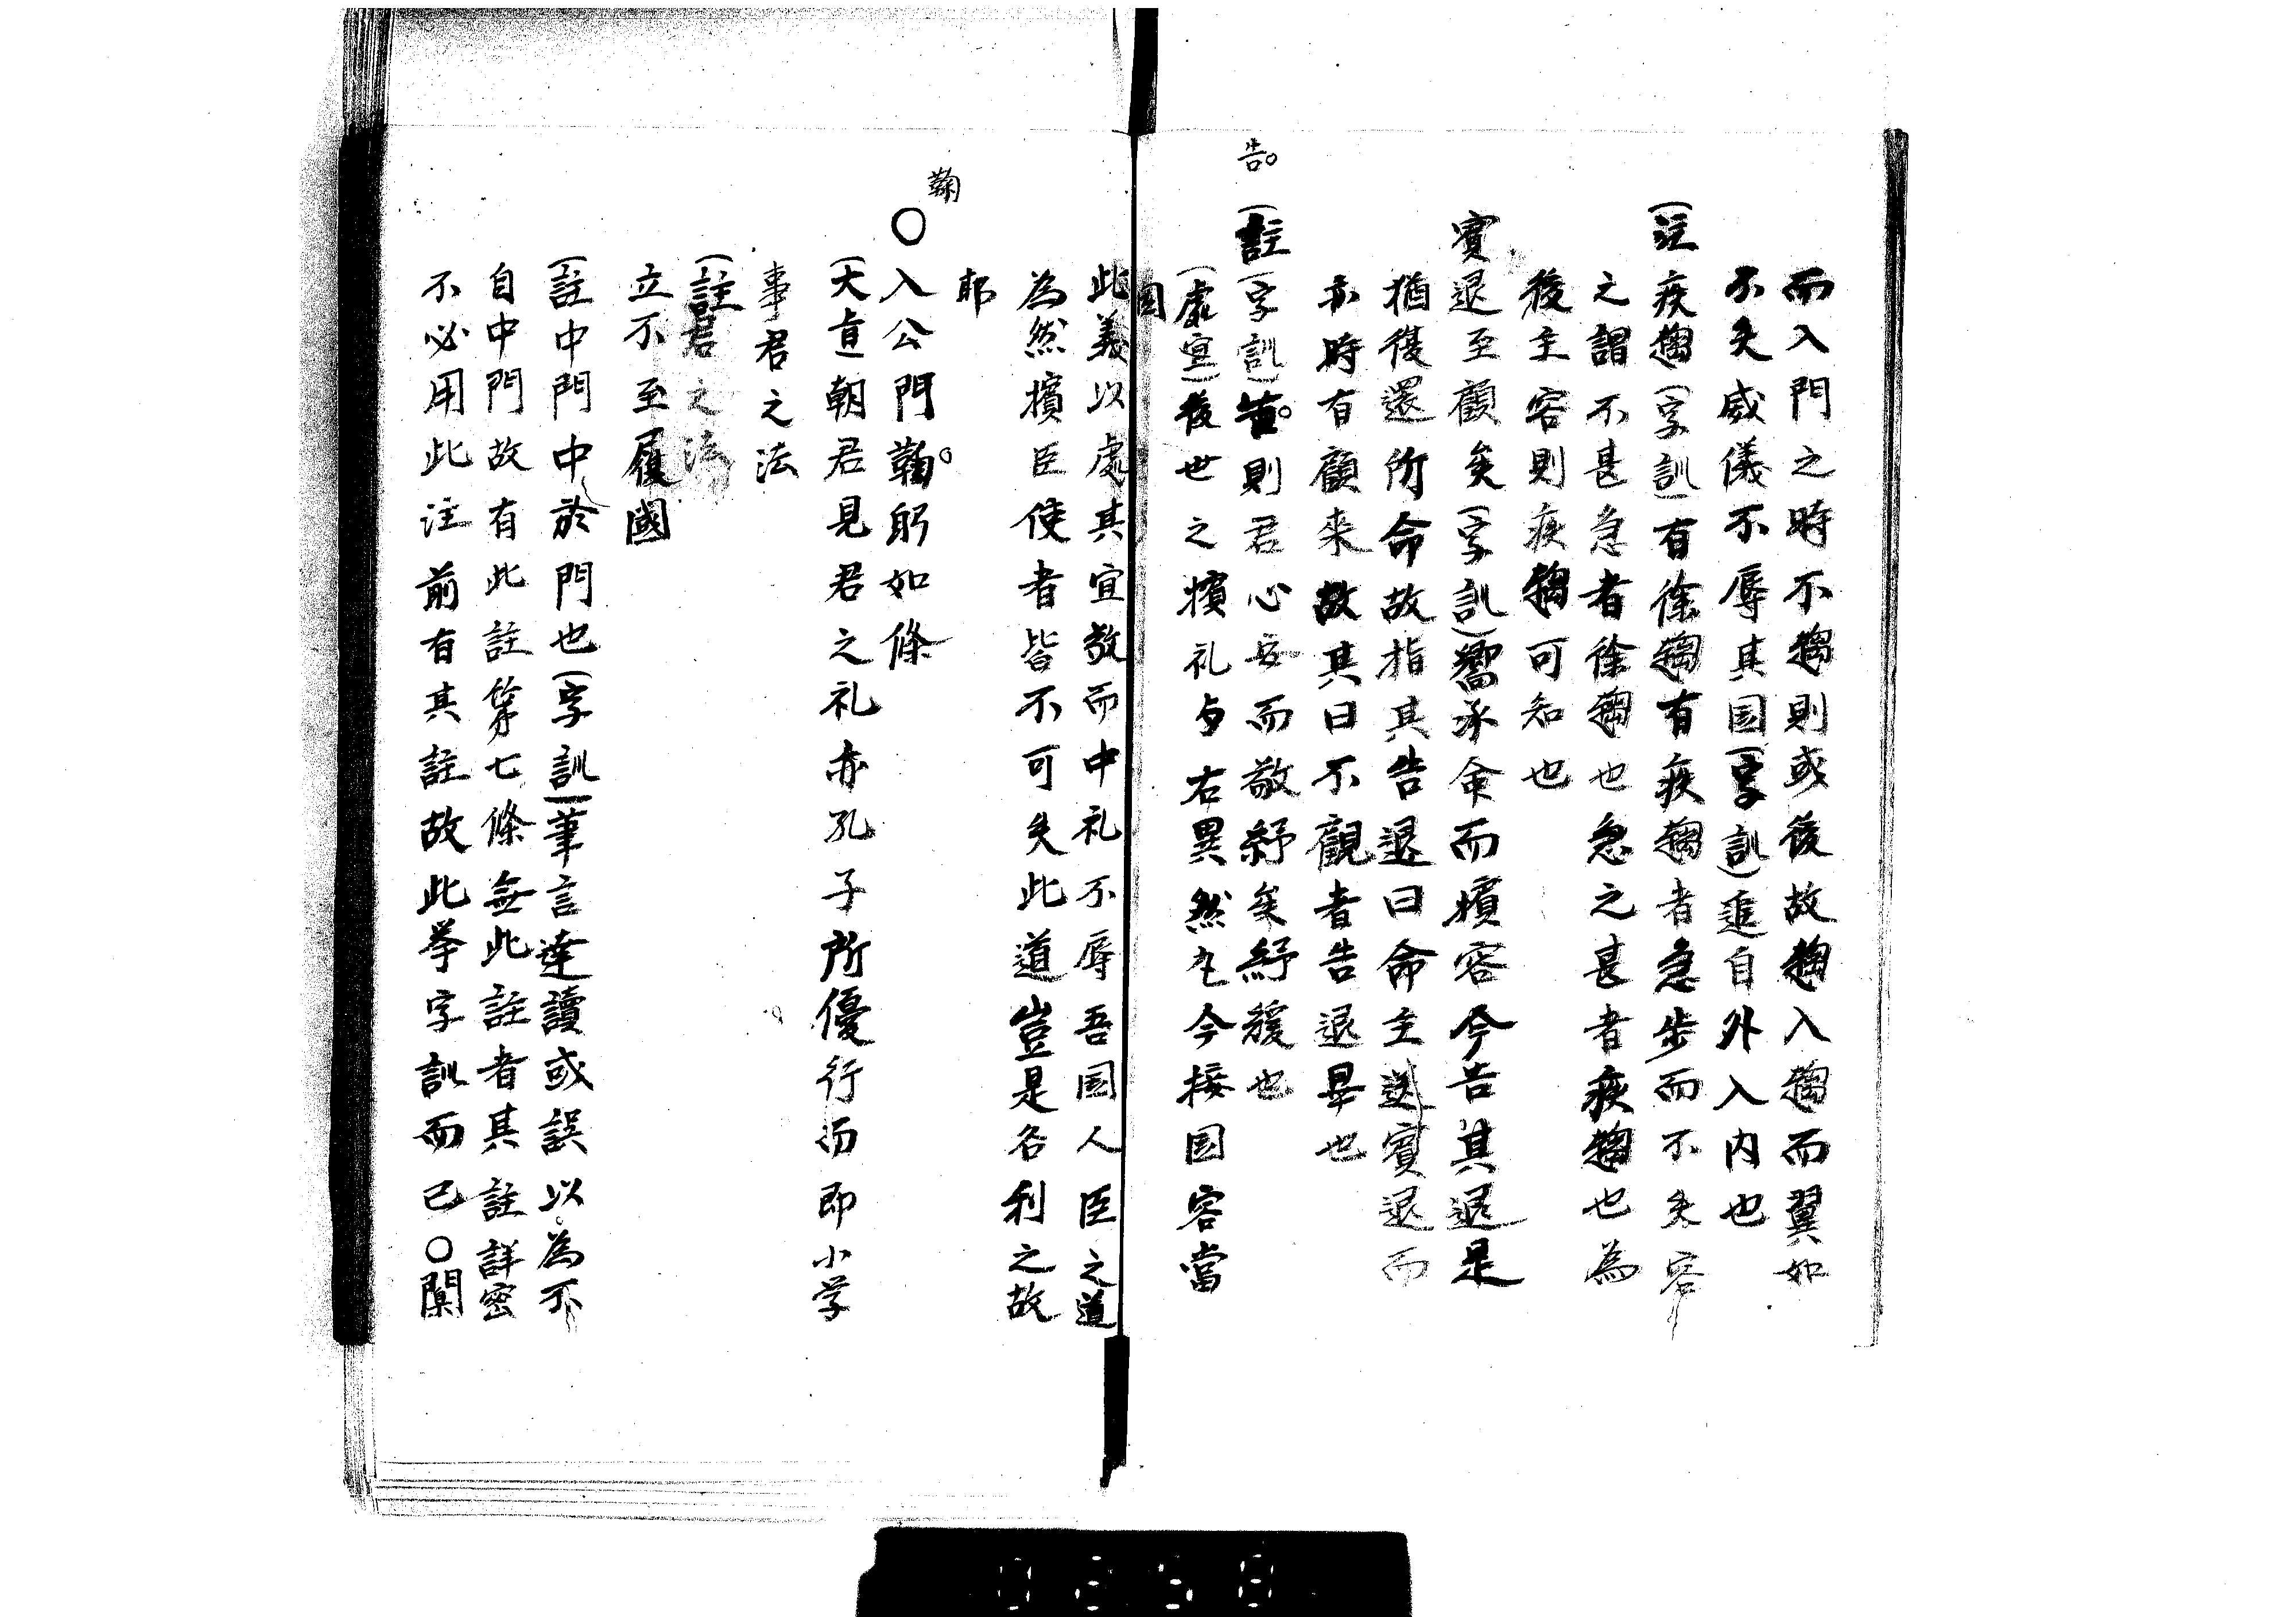 而入門之時不趨則或後故趨入趨而翼如
不失威儀不辱其国(字訓)進自外入内也
(註疾趨(字訓)有徐趨有疾趨者急步而不失容
之謂不甚急者徐趨也急之甚者疾趨也為
後主容則疾趨可知也
賓退至顧矣(字訓)嚮承命而擯容今告其退是
猶復還所命故指其告退曰命主送賓退而
亦時有顧来故其曰不顧者告退畢也
告。
(註(字訓)告。則君心安而敬紓矣紓緩也
(處宜)後世之擯礼与右異然凡今接国容當
国
此義以處其宜敬而中礼不辱吾国人臣之道
為然擯臣使者皆不可失此道豈是名利之故
耶
鞠
〇入公門鞠。躬如條
(大直朝君見君之礼亦孔子所優行而即小学
事君之法
(註君之法
立不至履國
(註中門中於門也(字訓)筆言達讀或誤以為不
自中門故有此註第七條無此註者其註詳密
不必用此注前有其註故此挙字訓而已〇闑